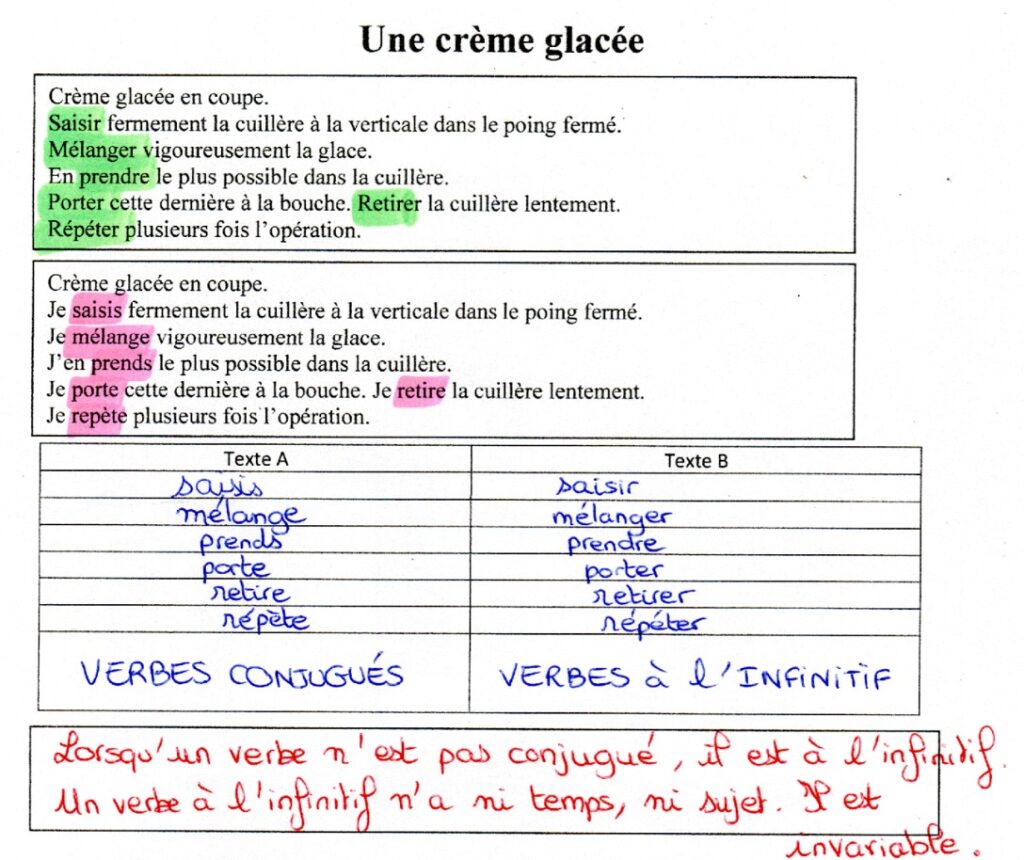 Une crème glacée
Crème glacée en coupe.
Saisir fermement la cuillère à la verticale dans le poing fermé.
Mélanger vigoureusement la glace.
En prendre le plus possible dans la cuillère.
Porter cette dernière à la bouche. Retirer la cuillère lentement.
Répéter plusieurs fois l'opération.
Crème glacée en coupe.
Je saisis fermement la cuillère à la verticale dans le poing fermé.
Je mélange vigoureusement la glace.
J'en prends le plus possible dans la cuillère.
Je porte cette dernière à la bouche. Je retire la cuillère lentement.
Je repète plusieurs fois l'opération.
Texte A Texte B
saisis saisir
mélange mélanger
prends prendre
porte porter
retire retirer
répète répéter
VERBES CONJUGUÉS VERBES à l'INFINITIF
Lorsqu'un verbe n'est pas conjugué, il est à l'infinitif.
Un verbe à l'infinitif n'a ni temps, ni sujet. Il est
invariable.